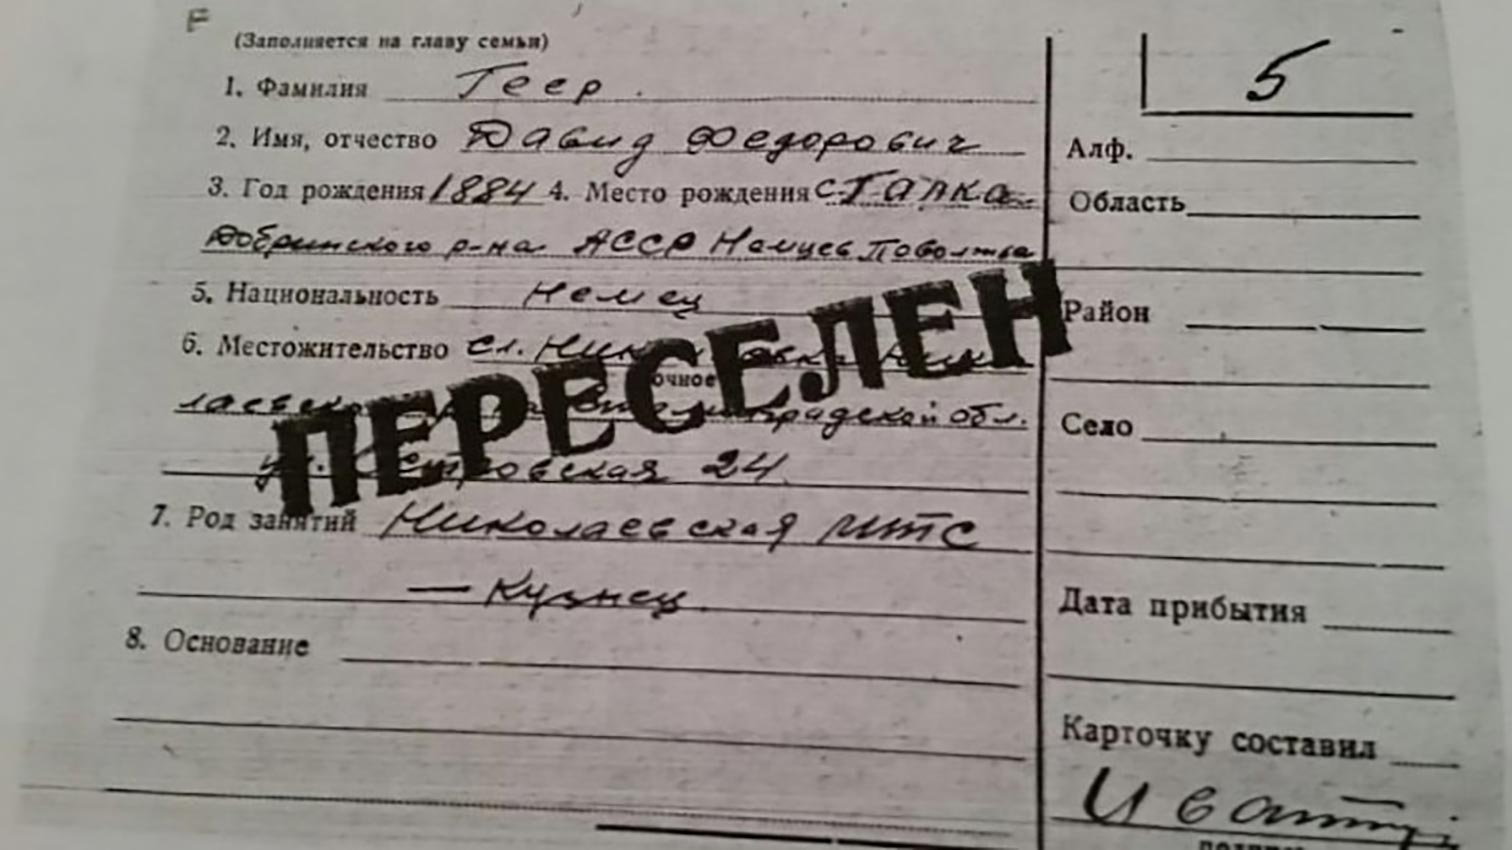 (Заполняется на главу семьи)
1. Фамилия Геер.
2. Имя, отчество Давид Федорович
3. Год рождения 1884 4. Место рождения с. Галка
Добринского р-на АССР Немцев Поволжья
5. Национальность Немец
6. Местожительство сл.
очное
обл.
24
ПЕРЕСЕЛЕН
7. Род занятий Николаевская МТС
— Кузнец.
8. Основание
5
Алф.
Область
Район
Село
Дата прибытия
Карточку составил